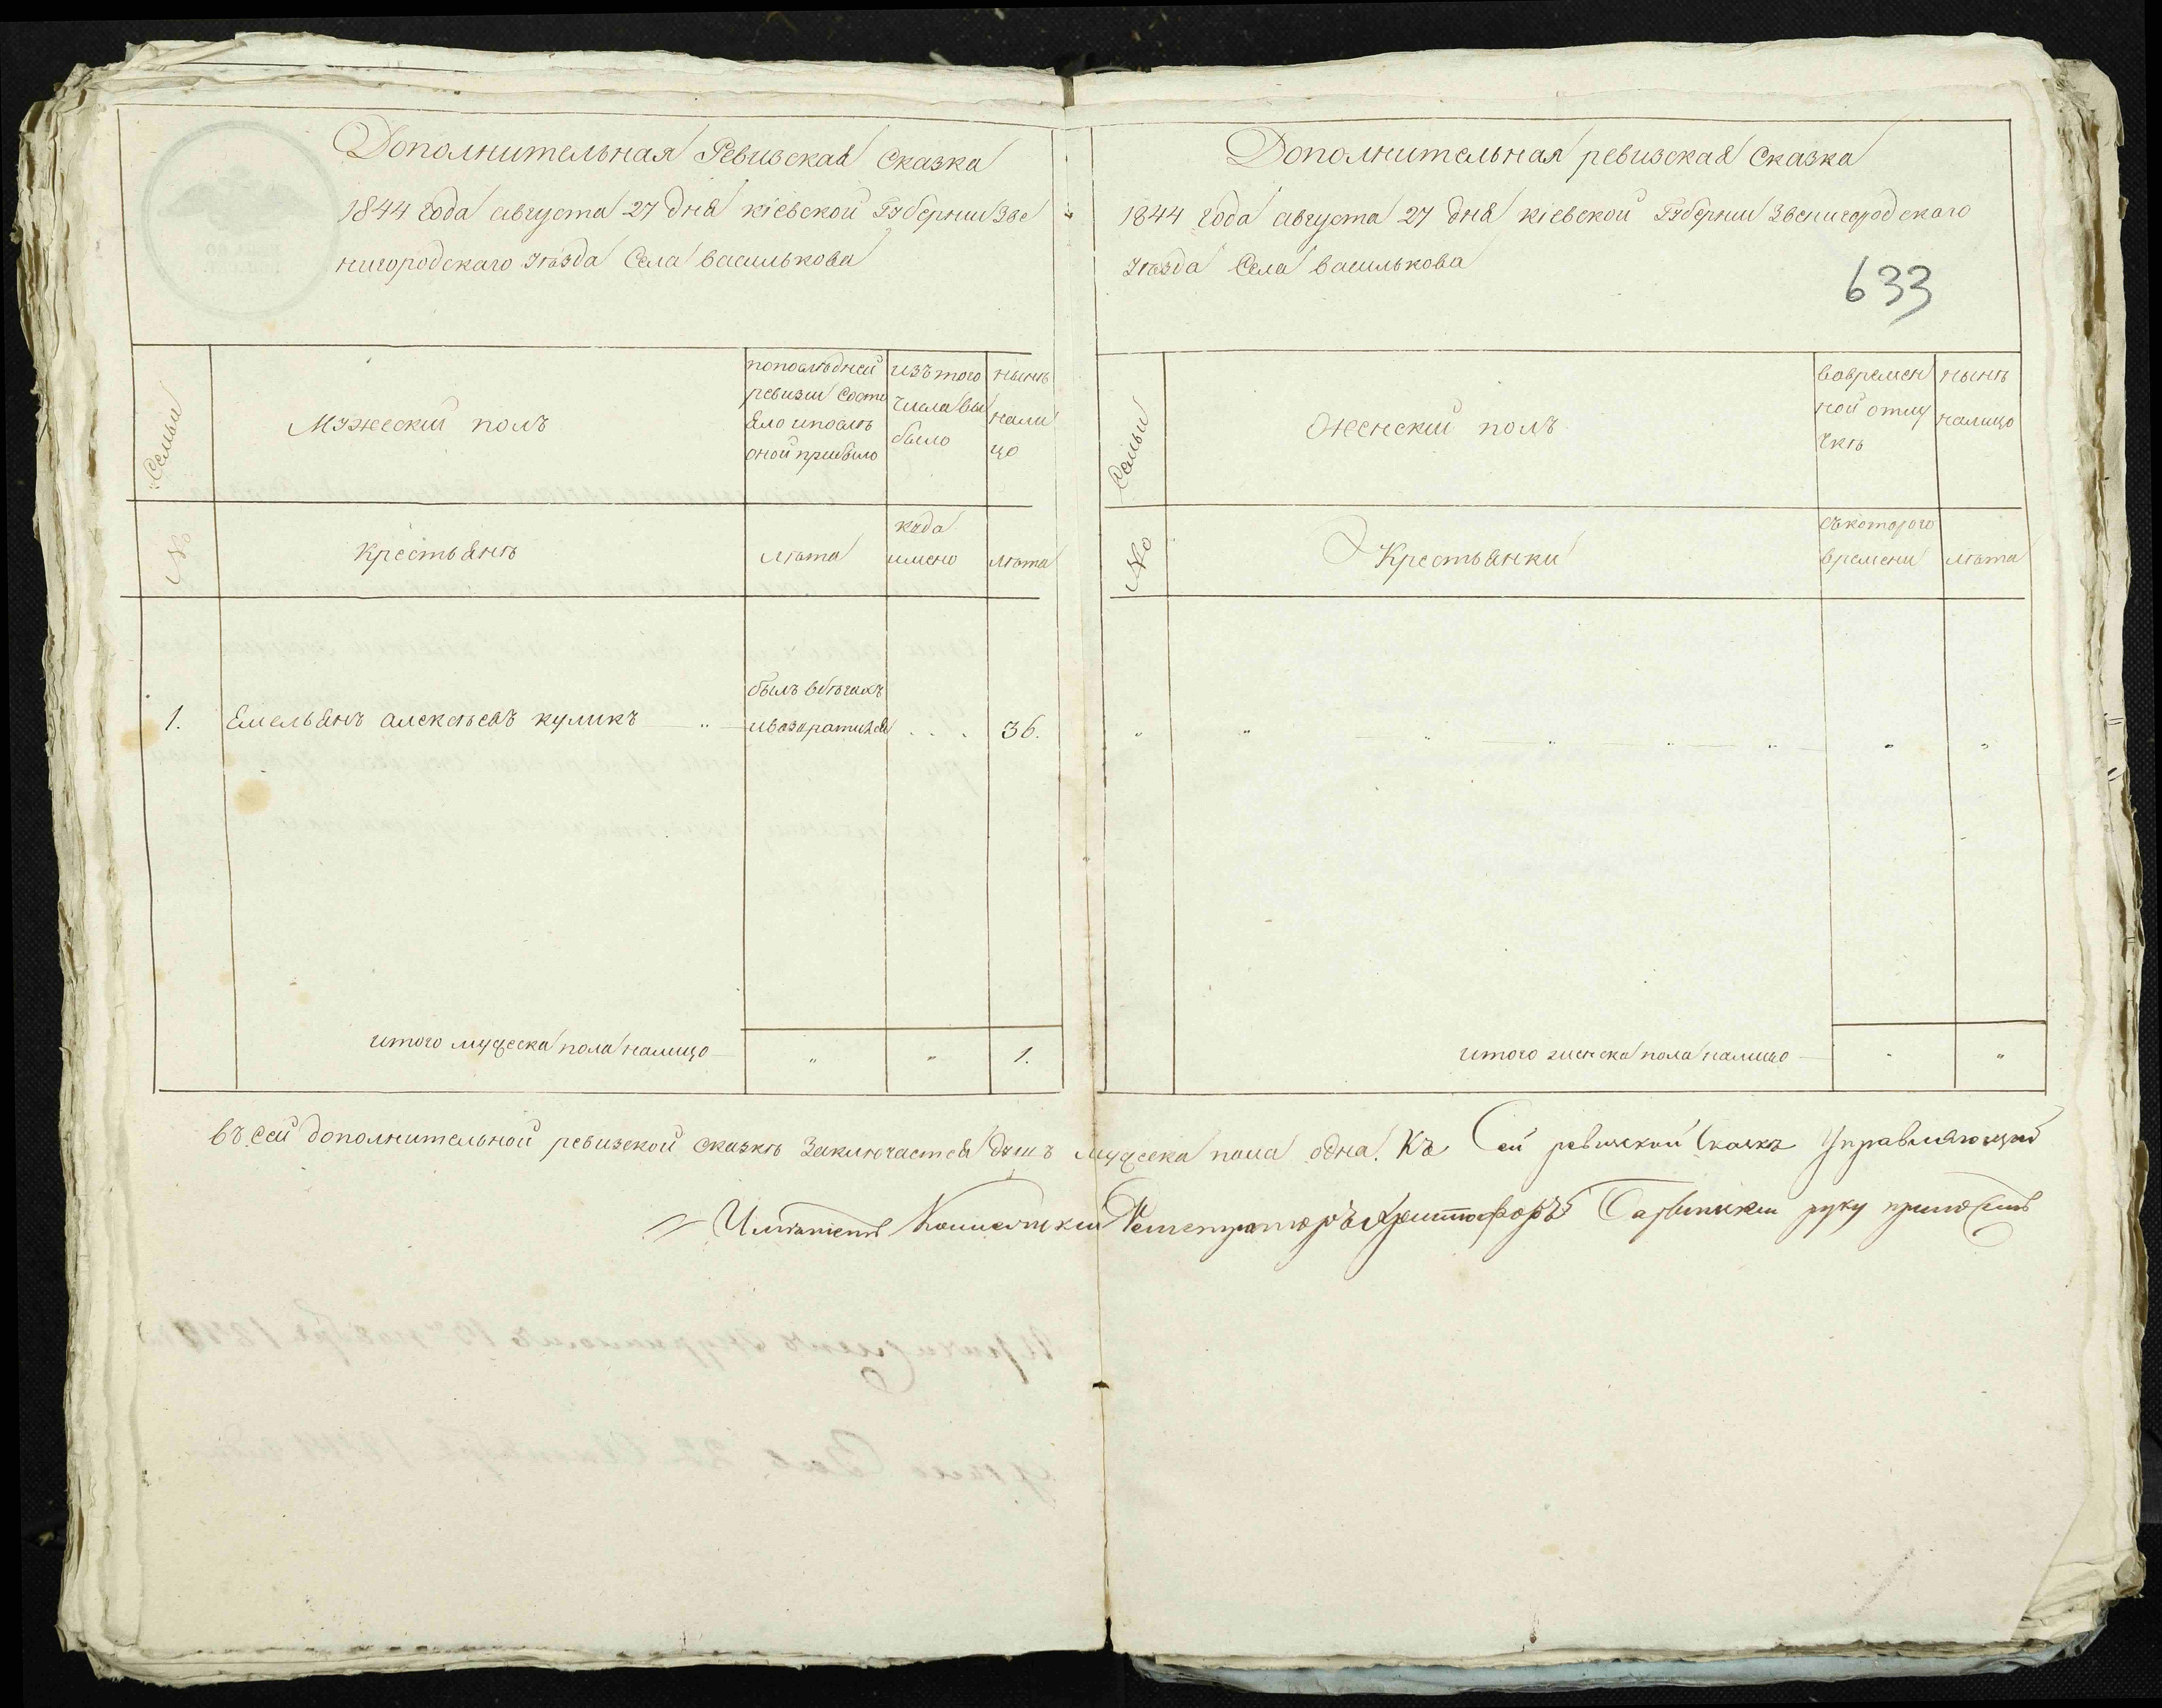 Дополнительная Ревизская Сказка
1844 года августа 27 дня кіевской Губерніи Зве
нигородскаго уѣзда Села василькова
Семьи
Мужескій полъ
попослѣдней
ревизіи состо
яло ипослѣ
оной прибыло
изътого
числа вы
было
нынѣ
нали
цо
№
крестьянѣ
лѣта
када
имено
лѣта
былъ вбѣгахъ
1. Емельянъ алексѣевъ куликъ " ивозвратился . . . 36.
итого мужеска пола налицо " " 1.
Дополнительная ревизская Сказка
1844 года августа 27 дня кіевской Губерніи Звенигородскаго
уѣзда Села василькова
633
Семьи
Женскій полъ
вовремен
ной отлу
чкѣ
нынѣ
налицо
№
Крестьянки
съкоторого
времени
лѣта
" " " " " " " "
итого женска пола налицо " "
въ сей дополнительной ревизской сказкѣ заключается душъ мужеска пола одна. Къ Сей ревизской сказкѣ Управляющій
Имѣніемъ Коллежскій Регистраторъ Христофоръ руку приложилъ